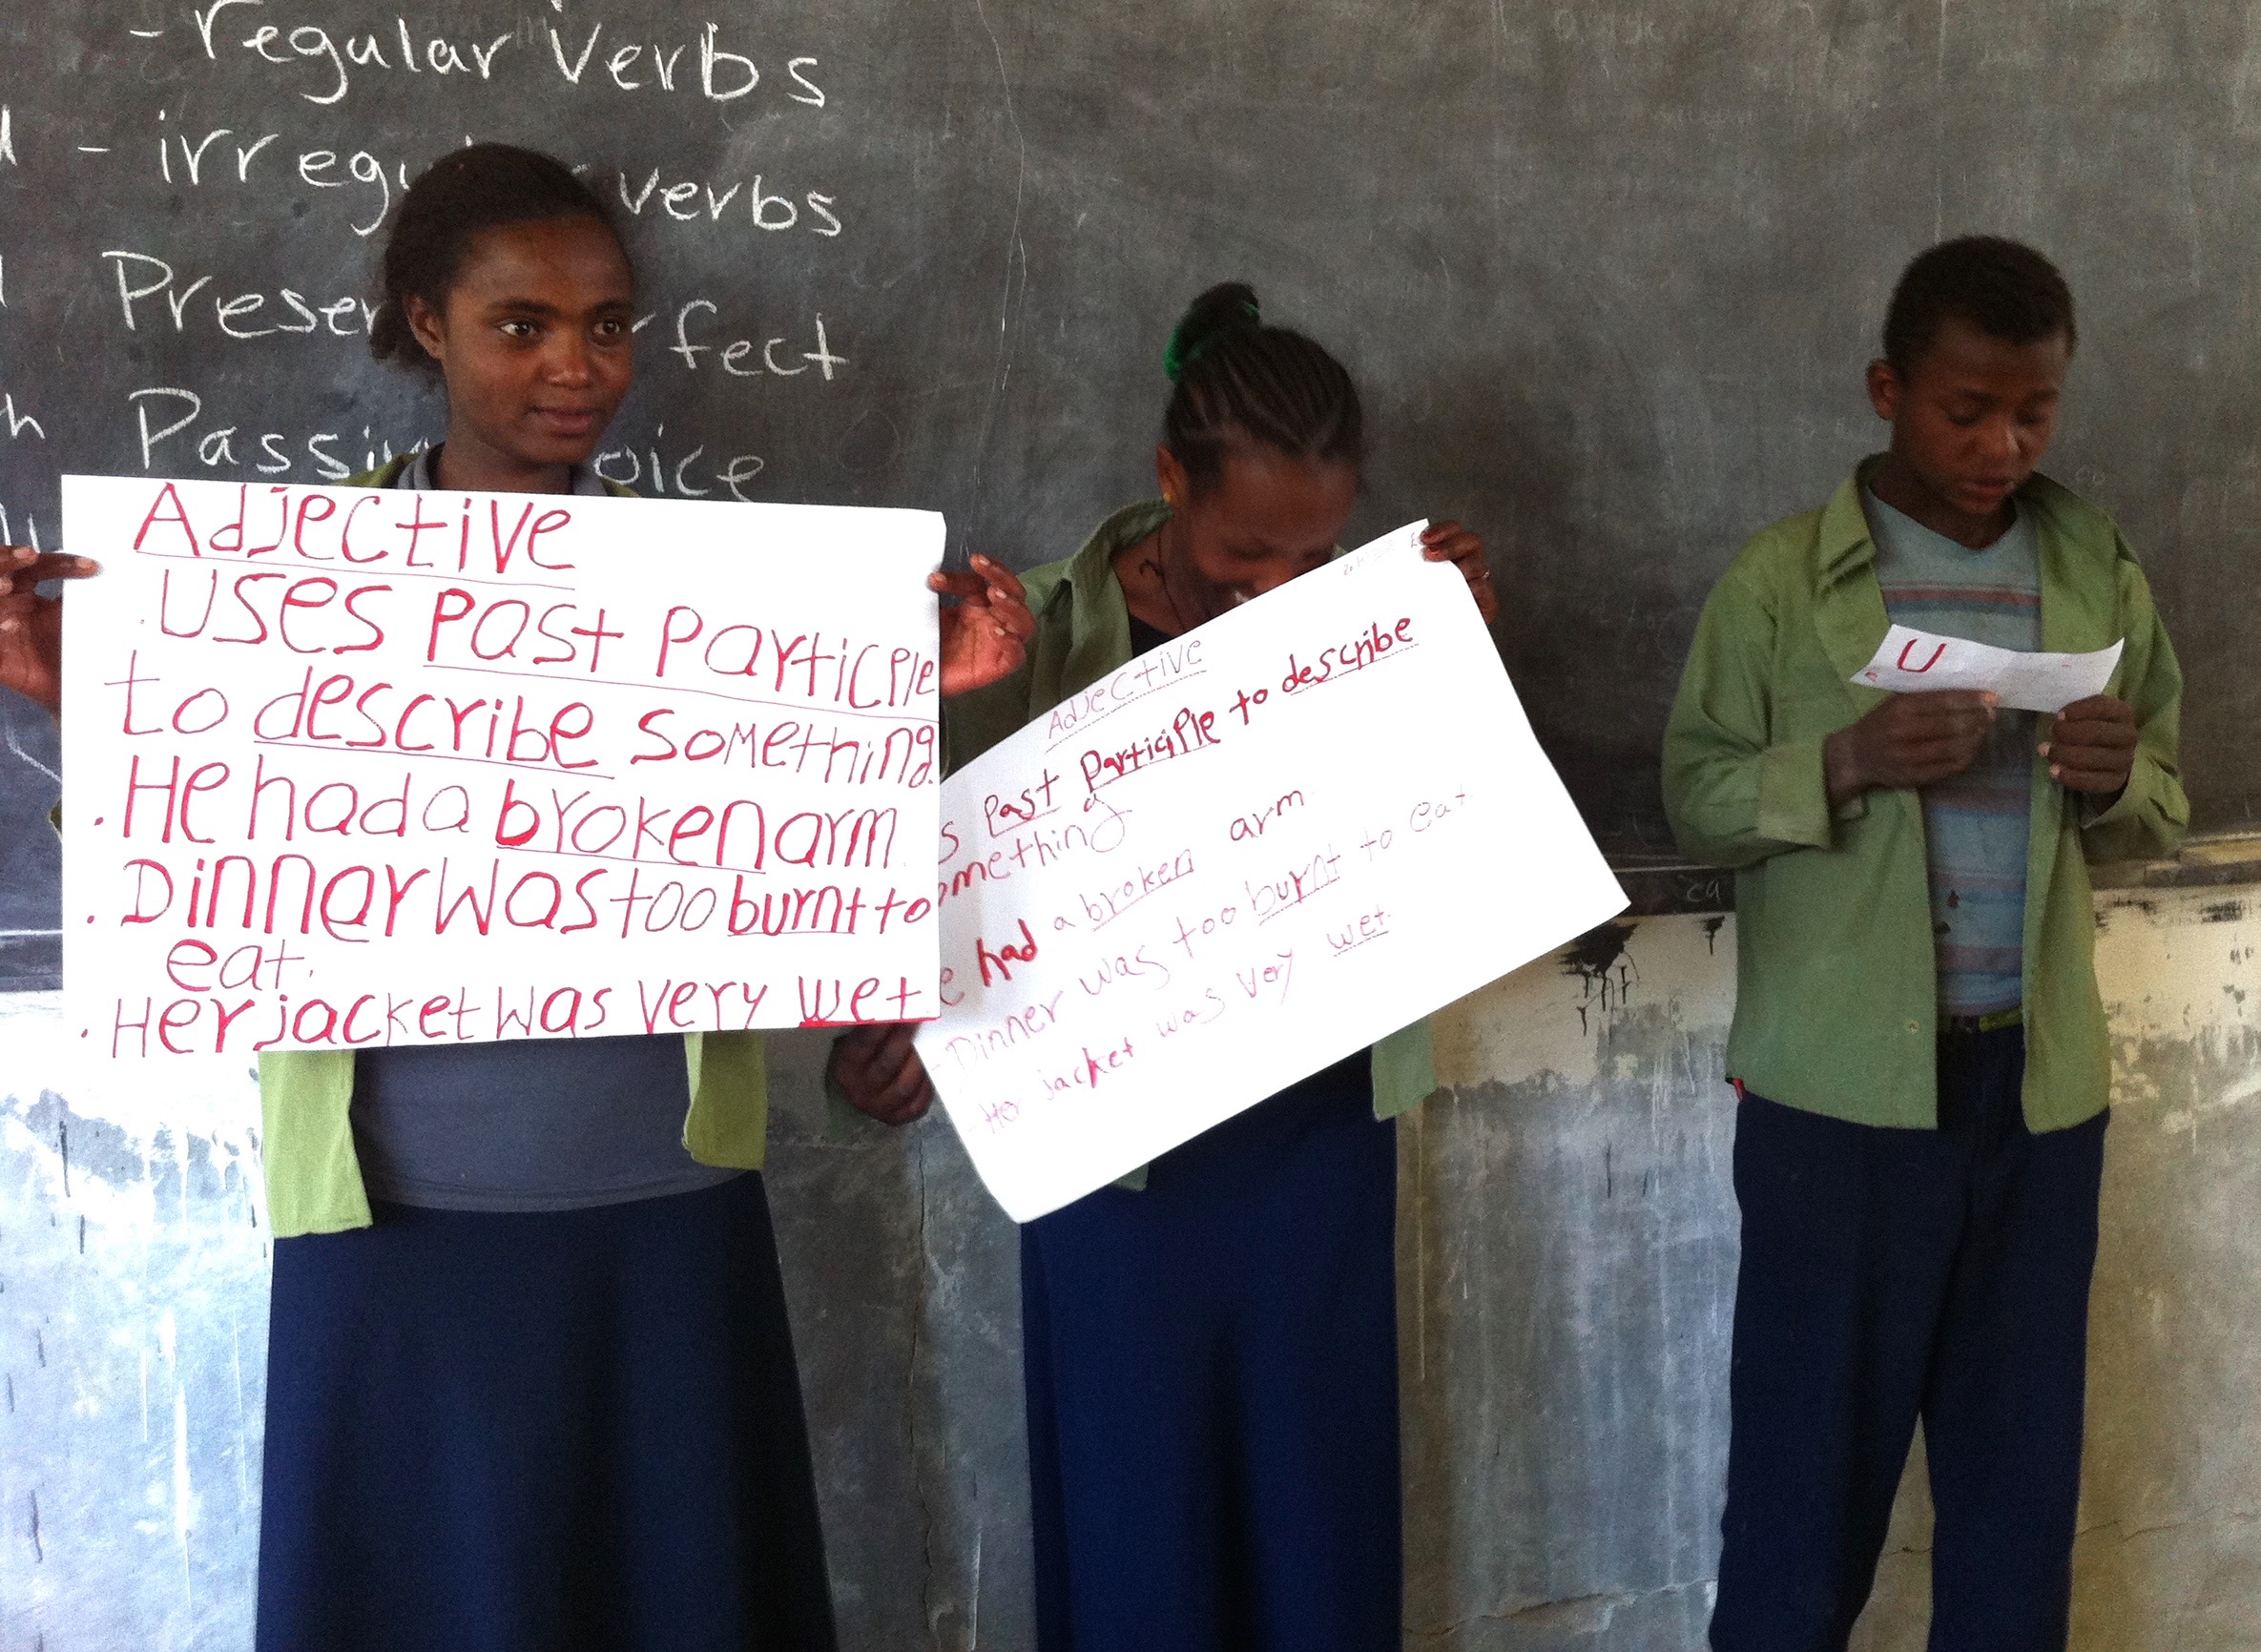 - regular verbs
- irreg verbs
Presen rfect
Passiv oice
Adjective
. Uses past participle
to describe something.
. He had a broken arm.
. Dinner was too burnt to
eat.
. Her jacket was very wet
Adjective
s past participle to describe
omething
e had a broken arm.
- Dinner was too burnt to eat.
- Her jacket was very wet.
U